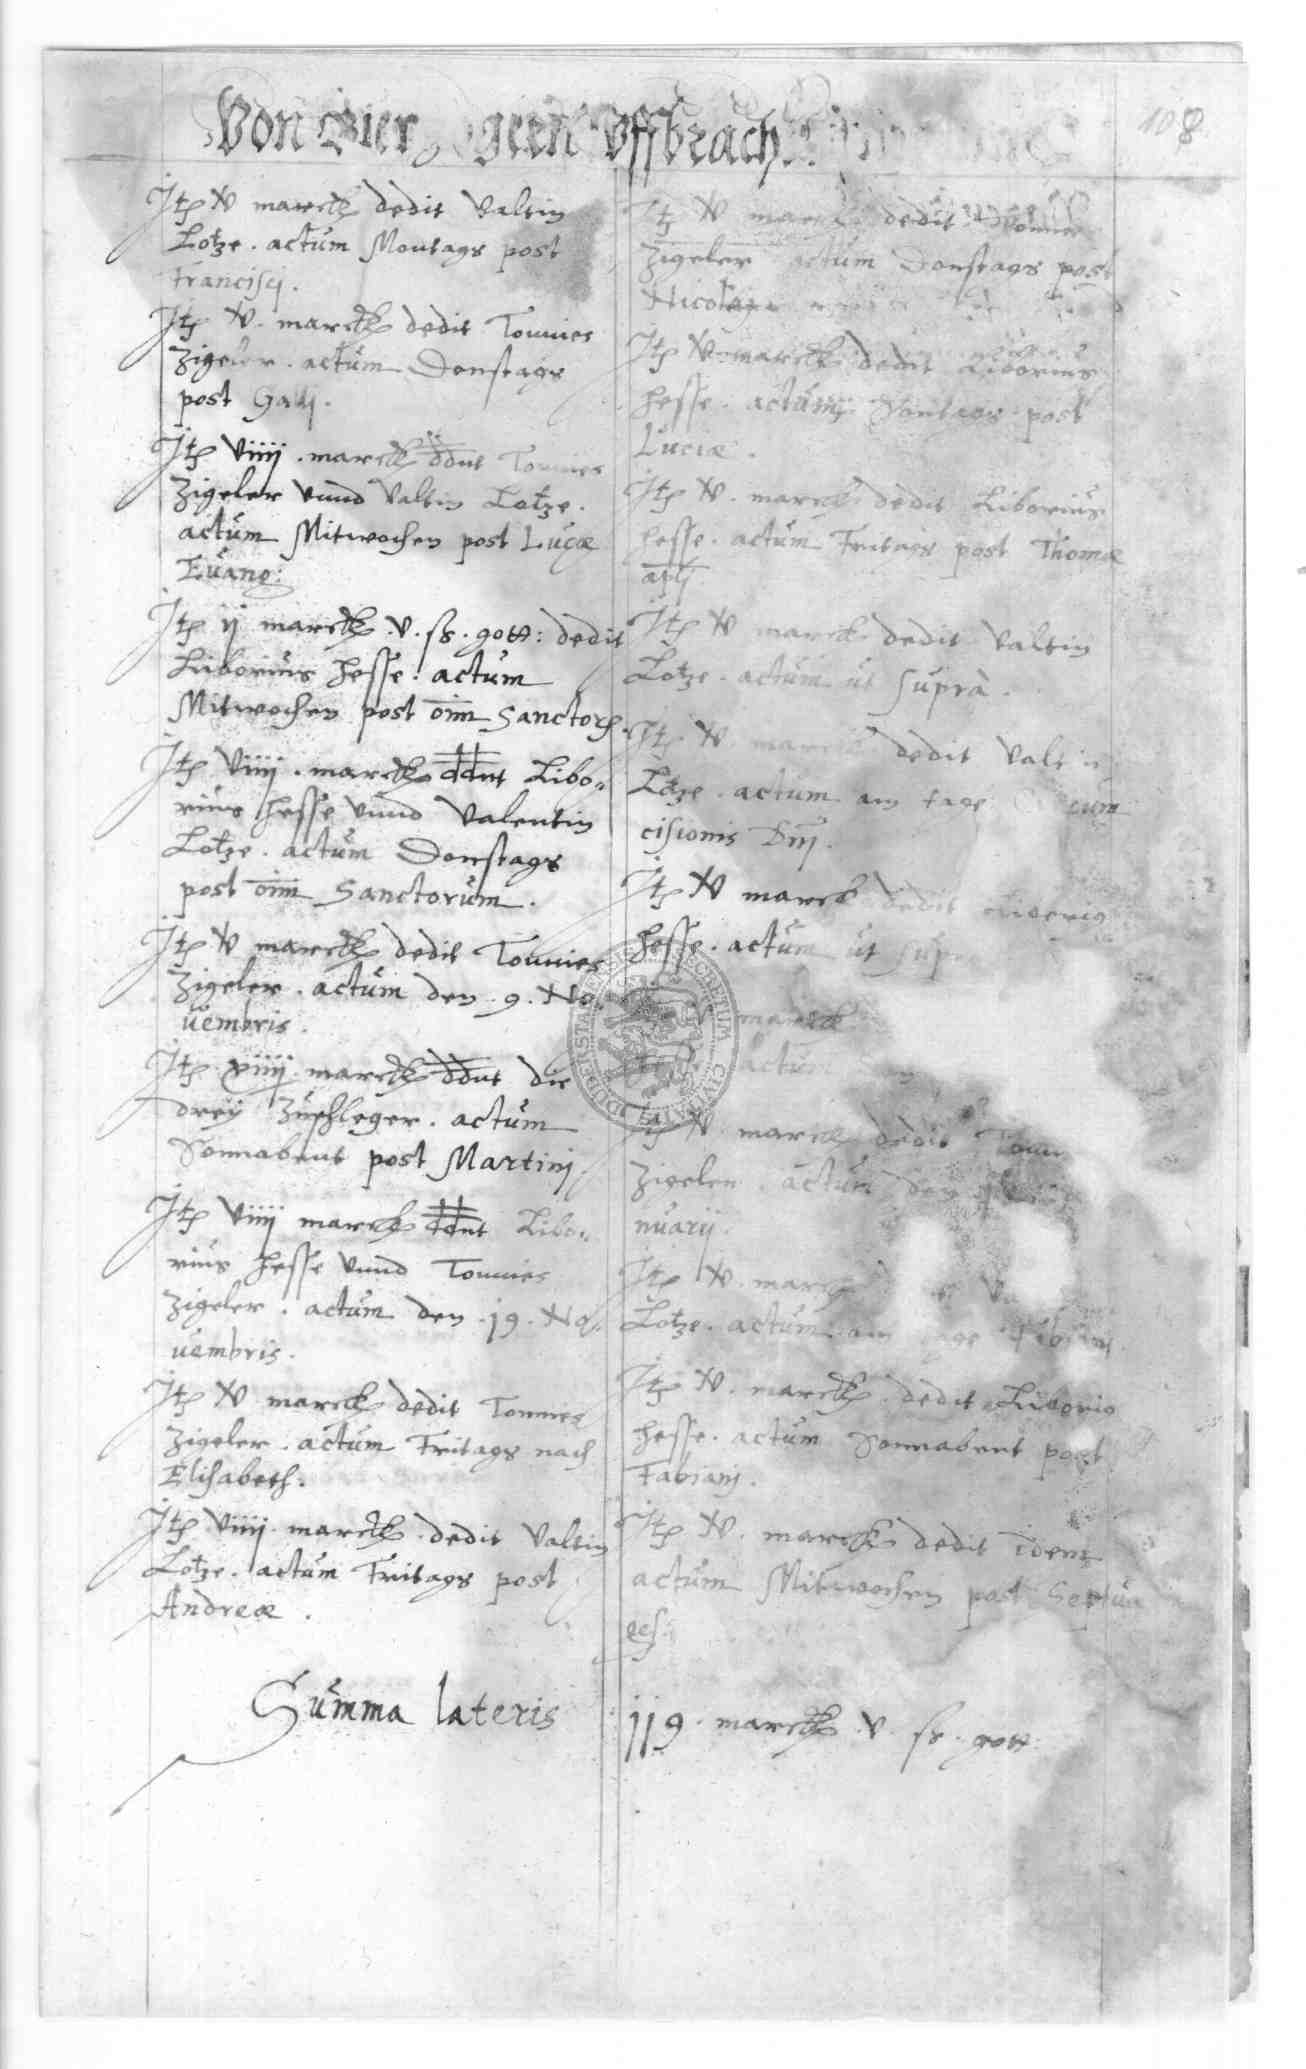 Von Bier geen Vffbracht
108
Itē V marck dedit Valtin
Lotze . actum Montags post
Francisci .
Itē V . marck dedit Tonnies
Zigeler . actum Donstags
post Galli .
Itē viiij . marck ddnt Tonnies
Zigeler vnnd Valtin Lotze .
actum Mitwochen post Lucæ
Euang:
Itē ij marck . v . ß . gott : dedit
Liborius Hesse . actum
Mitwochen post oīm Sanctorū .
Itē viiij . marck ddnt Libo„
rius Hesse vnnd Valentin
Lotze . actum Donstags
post oīm Sanctorum .
Itē V marck dedit Tonnies
Zigeler . actum den . 9 . No„
uembris .
Itē xiiij . marck ddnt die
drey Zuschleger . actum
Sonnabent post Martinj .
Itē viiij marck ddnt Libo„
rius Hesse vnnd Tonnies
Zigeler . actum den . j9 . No„
uembris .
Itē V marck dedit Tonnies
Zigeler . actum Fritags nach
Elisabeth .
Itē viiij . marck . dedit Valtin
Lotze . actum Fritags post
Andreæ .
Itē V marck dedit Tonnies
Zigeler actum Donstags post
Nicolaj
Itē V marck dedit Liborius
Hesse . actum Sontags post
Luciæ .
Itē V . marck dedit Liborius
Hesse . actum Fritags post Thomæ
aplī
Itē V marck dedit Valtin
Lotze . actum ut supra .
Itē V . marck dedit Valtin
Lotze . actum am tage Circum
cisionis Dnj .
Itē V marck dedit Liborius
Hesse . actum ut supra
marck
actum
Itē V marck dedit Tonn
Zigeler . actum den
nuarij .
Itē V . marck
Lotze . actum am tage Fabianj
Itē V . marck . dedit Liborio
Hesse . actum Sonnabent post
Fabianj .
Itē V . marck dedit idem
actum Mitwochen post Septua
ges:
Summa lateris
jj9 . marck . v . ß . gott